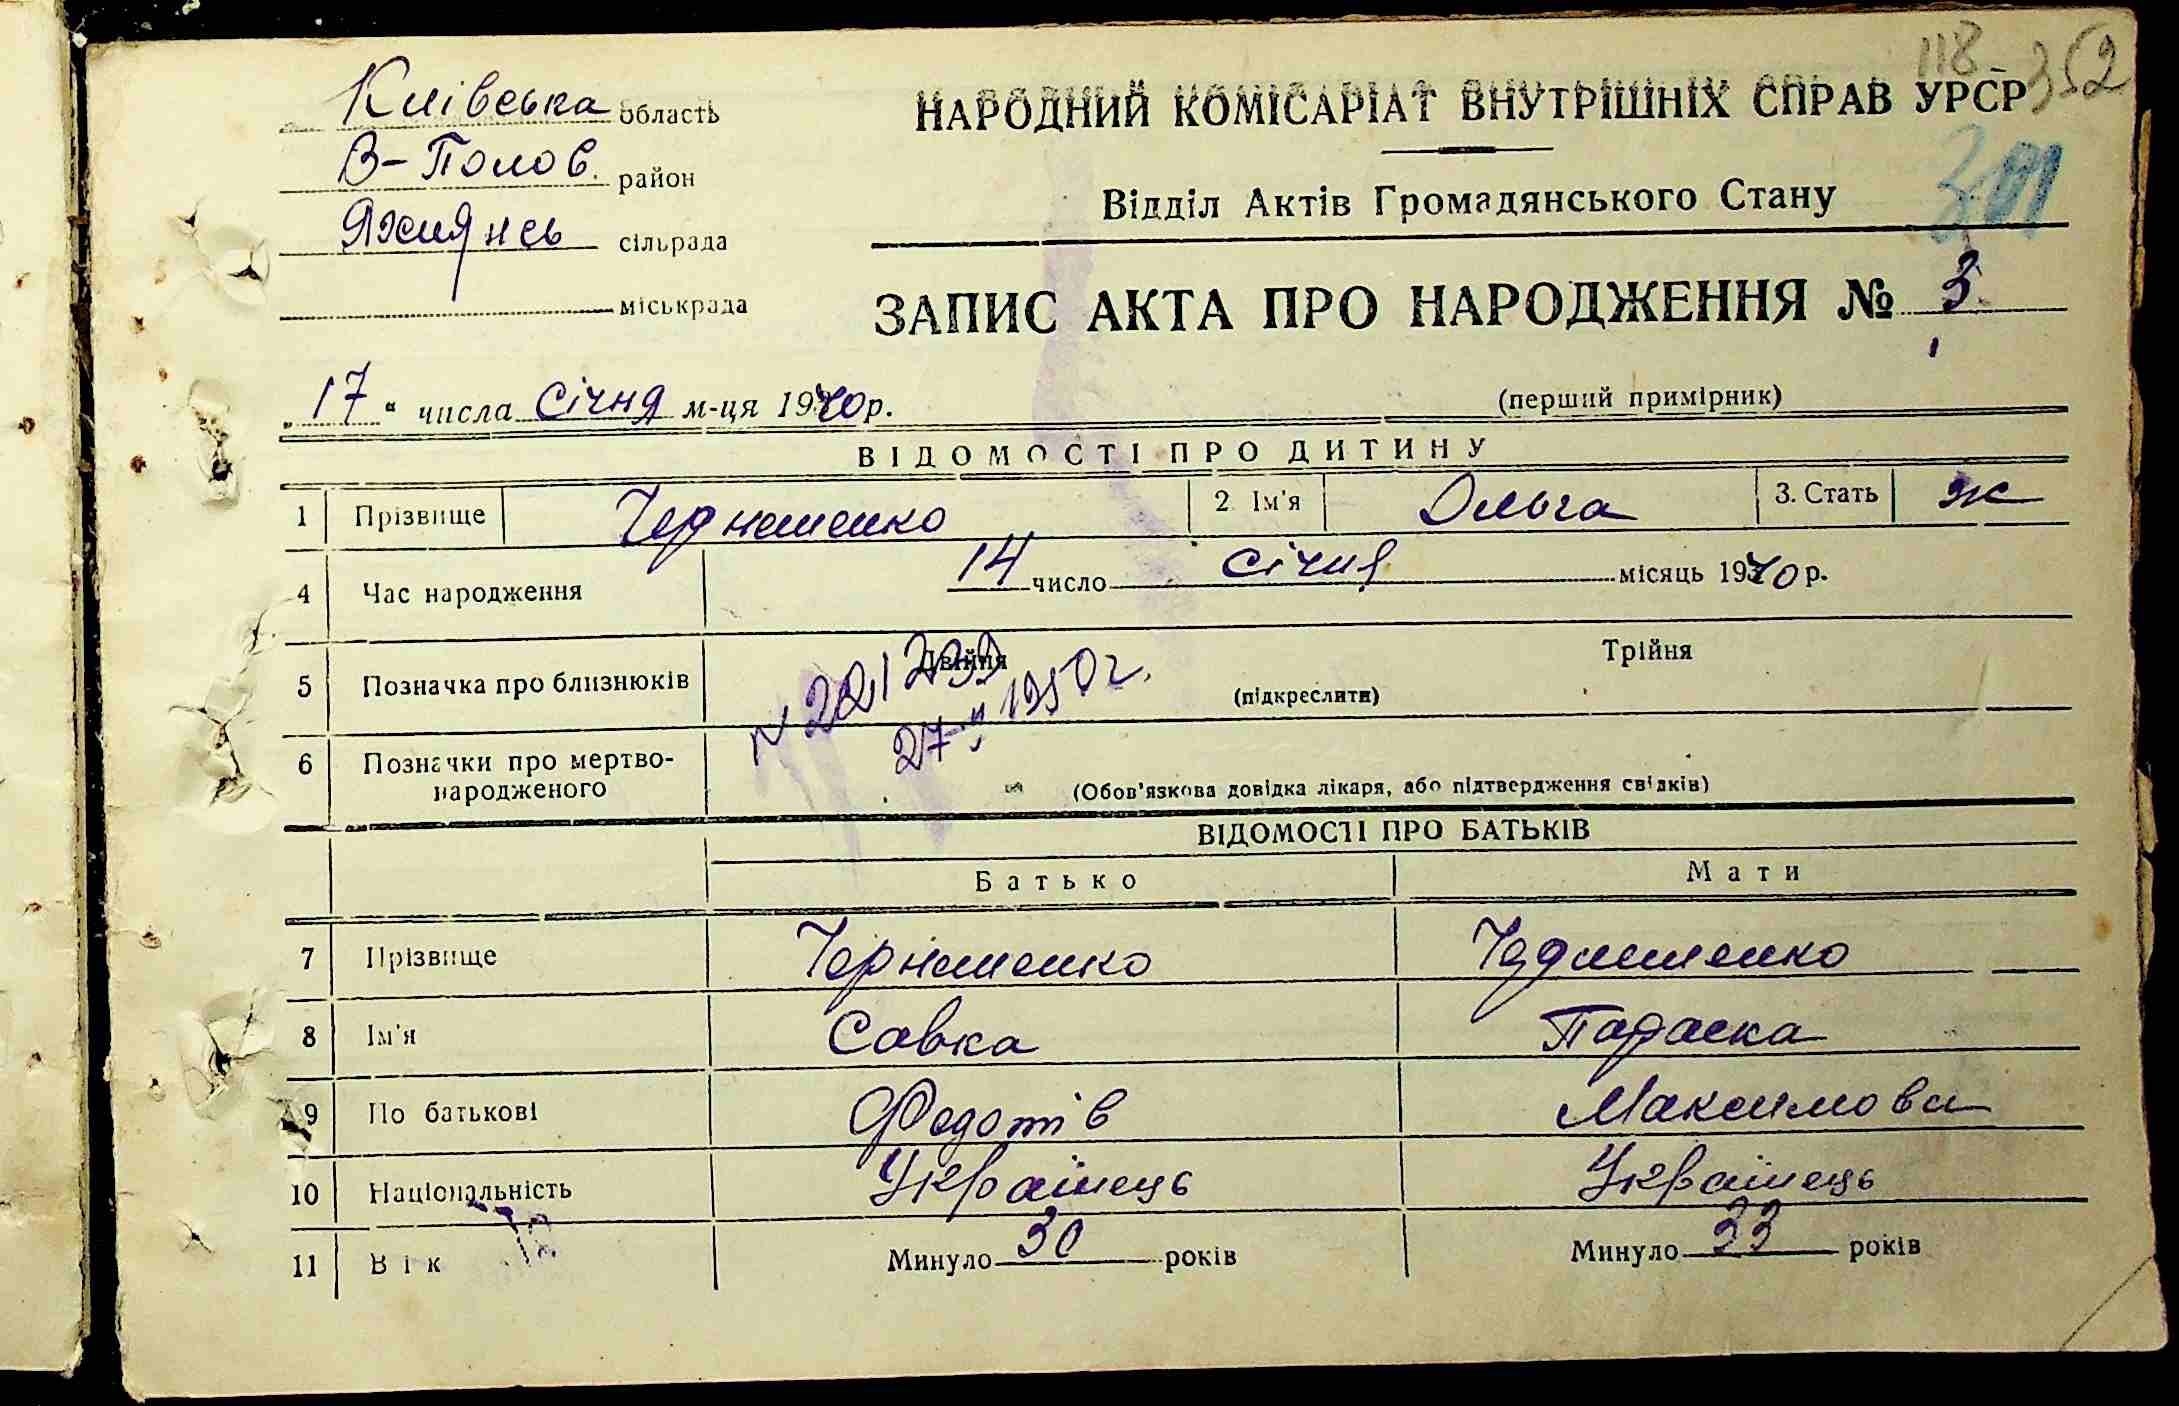 118 352
Київська область
В-Полов. район
Яхнянсь сільрада
міськрада
НАРОДНИЙ КОМІСАРІАТ ВНУТРІШНІХ СПРАВ УРСР
Відділ Актів Громадянського Стану
ЗАПИС АКТА ПРО НАРОДЖЕННЯ № 3
„17" числа січня м-ця 1940р.
(перший примірник)
ВІДОМОСТІ ПРО ДИТИНУ
1 Прізвище Чернишенко 2 Ім'я Ольга 3. Стать ж
4 Час народження 14 число січня місяць 1940р.
5 Позначка про близнюків Двійня (підкреслити) Трійня
27 1950г.
6 Позначки про мертво-
народженого (Обов'язкова довідка лікаря, або підтвердження свідків)
ВІДОМОСТІ ПРО БАТЬКІВ
Батько Мати
7 Прізвище Чернишенко Чернишенко
8 Ім'я Савка Параска
9 По батькові Федотів Максимова
10 Національність Українець Українець
11 Вік Минуло 30 років Минуло 33 років